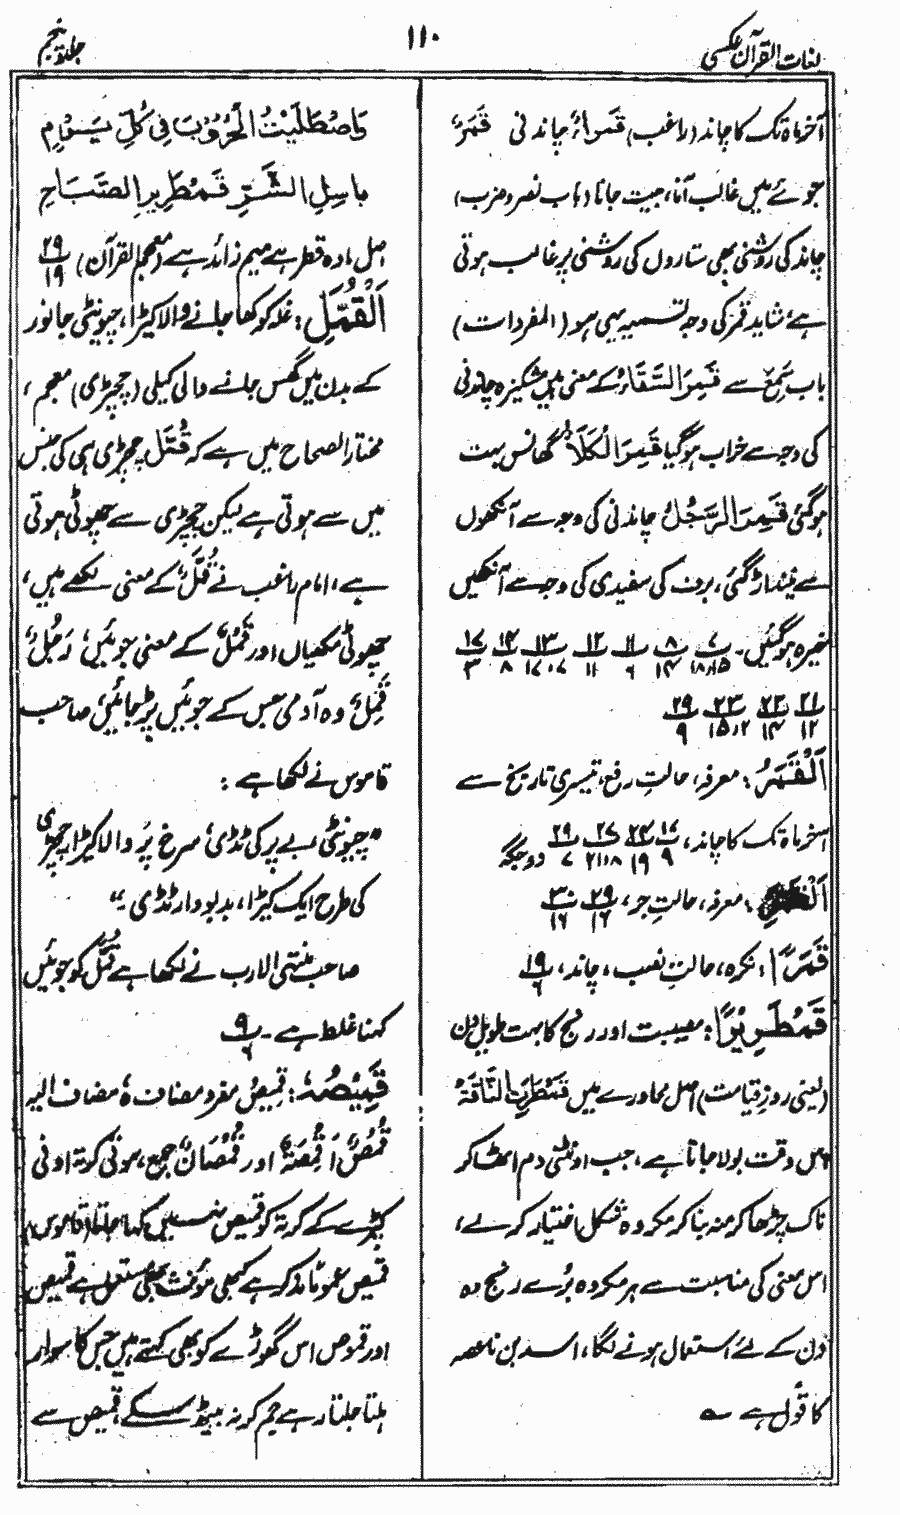 لغات القرآن عکسی
۱۱۰
جلد پنجم
آخر ماہ تک کا چاند (راغب) قَمراءُ چاندنی قَمَرٌ
جوئے میں غالب آنا، جیت جانا (باب نصر و ضرب)
چاند کی روشنی بھی ستاروں کی روشنی پر غالب ہوتی
ہے، شاید قمر کی وجہ تسمیہ یہی ہو (المفردات)
باب سَمِعَ سے قَمِرَ السِّقَاءُ کے معنی ہیں مشکیزہ چاندنی
کی وجہ سے خراب ہو گیا قَمِرَ الْکَلَأُ گھانس بہت
ہو گئی قَمِرَ الرَّجُلُ چاندنی کی وجہ سے آنکھوں
سے نیند اڑ گئی، برف کی سفیدی کی وجہ سے آنکھیں
خیرہ ہو گئیں۔ ۷/۱۵،۱۸ ۸/۱۴ ۱۱/۹ ۱۲/۱۱ ۱۳/۷،۱۷ ۱۴/۸ ۱۷/۳
۲۱/۱۲ ۲۲/۱۴ ۲۳/۱۵،۲ ۲۹/۹
اَلْقَمَرُ: معرفہ، حالتِ رفع، تیسری تاریخ سے
آخر ماہ تک کا چاند، ۱۷/۹ ۲۳/۱۹ ۲۷/۸،۱۱،۲ ۲۹/۷ دو جگہ
اَلْقَمَرِ: معرفہ، حالتِ جر، ۲۹/۱۶ ۳۰/۱۶
قَمَرًا: نکرہ، حالتِ نصب، چاند، ۱۹/۶
قَمْطَرِیْرًا: مصیبت اور رنج کا بہت طویل دن
(یعنی روزِ قیامت) اصل محاورے میں قَمْطَرَتِ النَّاقَۃُ
اس وقت بولا جاتا ہے، جب اونٹنی دم اٹھا کر
ناک چڑھا کر منہ بنا کر مکروہ شکل اختیار کر لے،
اس معنی کی مناسبت سے ہر مکروہ بُرے رنج دہ
دن کے لئے استعمال ہونے لگا، اسد بن ناعصہ
کا قول ہے ؎
وَاصْطَلَیْتُ الْحُرُوْبَ فِی کُلِّ یَوْمٍ
بَاسِلِ الشَّرِّ قَمْطَرِیرِ الصَّبَاحِ
اصل مادہ قطر ہے میم زائد ہے (معجم القرآن) ۲۹/۱۹
اَلْقُمَّلَ: غلہ کو کھا جانے والا کیڑا، چیونٹی جانور
کے بدن میں گھس جانے والی کیلی (چچڑی) معجم،
مختار الصحاح میں ہے کہ قُمَّل چچڑی ہی کی جنس
میں سے ہوتی ہے لیکن چچڑی سے چھوٹی ہوتی
ہے، امام راغب نے قُمَّلٌ کے معنی لکھے ہیں،
چھوٹی مکھیاں اور قَمْلٌ کے معنی جوئیں، رَجُلٌ
قَمِلٌ، وہ آدمی جس کے جوئیں پڑ جائیں، صاحب
قاموس نے لکھا ہے :
"چیونٹی، بے پر کی ٹڈی، سرخ پَر والا کیڑا، چچڑی
کی طرح ایک کیڑا، بدبودار ٹڈی۔"
صاحب منتہی الارب نے لکھا ہے قُمَّل کو جوئیں
کہنا غلط ہے۔ ۹/۶
قَمِیْصُہٗ: قمیصُ مفرد مضاف ہٗ مضاف الیہ
قُمُصٌ، اَقْمِصَۃٌ اور قُمْصَانٌ جمع، سوتی کرتہ اونی
کپڑے کے کرتہ کو قمیص نہیں کہا جاتا (قاموس)
قمیص عموماً مذکر ہے کبھی مؤنث بھی مستعمل ہے قمیص
اور قموص اس گھوڑے کو بھی کہتے ہیں جس کا سوار
ہلتا جلتا رہے جم کر نہ بیٹھ سکے، قمیص سے